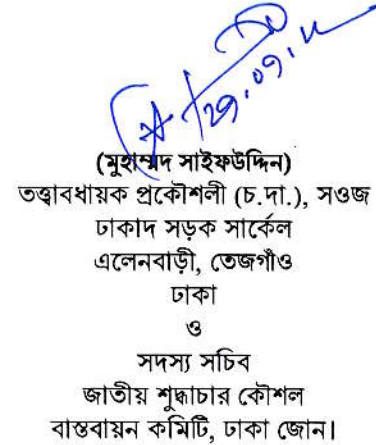 (মুহাম্মদ সাইফউদ্দিন)
তত্ত্বাবধায়ক প্রকৌশলী (চ.দা.), সওজ
ঢাকাদ সড়ক সার্কেল
এলেনবাড়ী, তেজগাঁও
ঢাকা
ও
সদস্য সচিব
জাতীয় শুদ্ধাচার কৌশল
বাস্তবায়ন কমিটি, ঢাকা জোন।